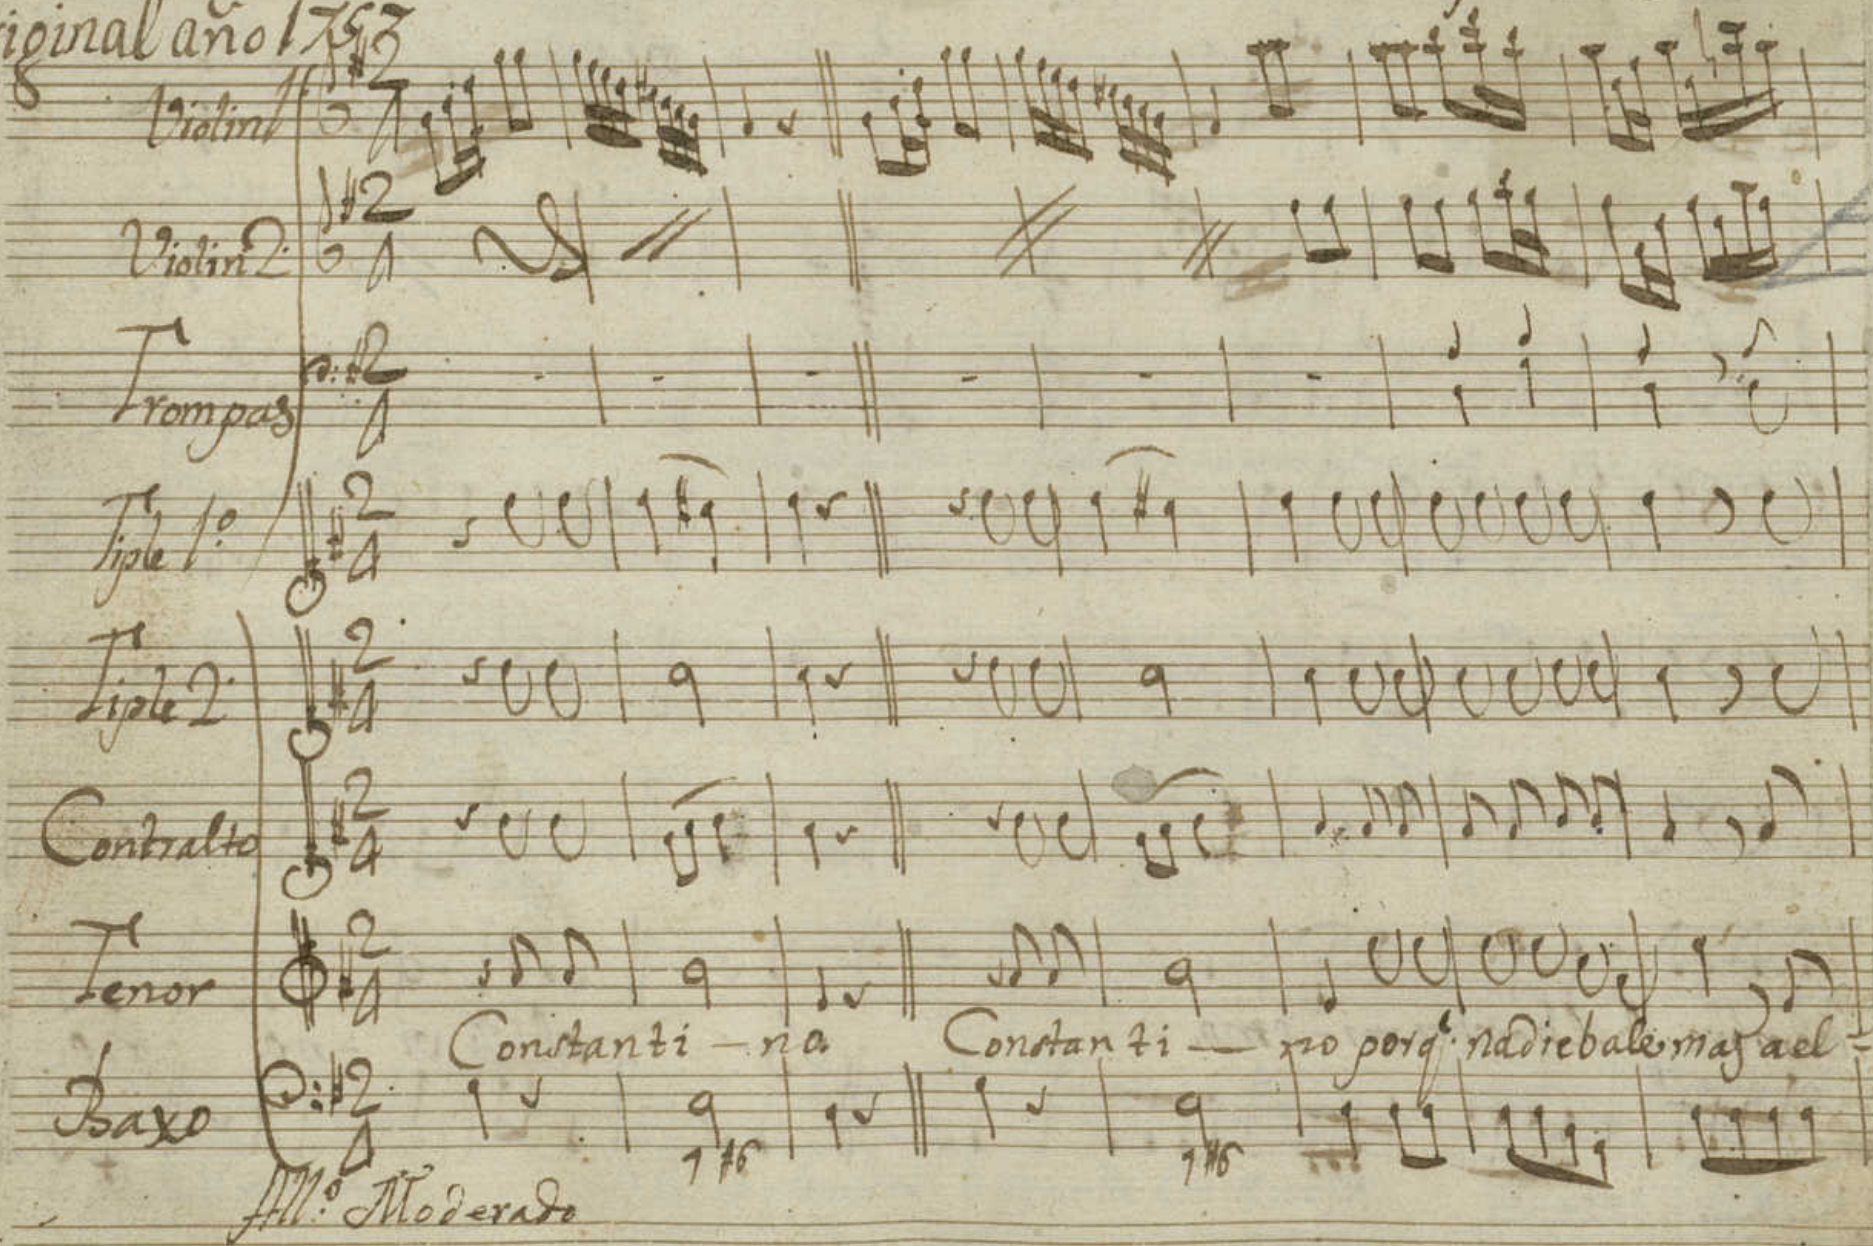 original año 1757
Violin 1
Violin 2.
Trompas
Tiple 1º
Tiple 2.
Contralto
Tenor
Constanti – na Constanti — no porq.e nadie bale mas a el =
Baxo
7 #6 7 #6
All.º Moderado